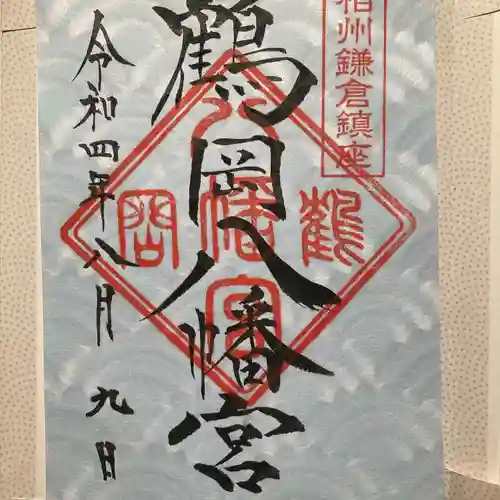 相州鎌倉鎮座
鶴岡八幡宮
令和四年八月九日
鶴
岡
八幡宮